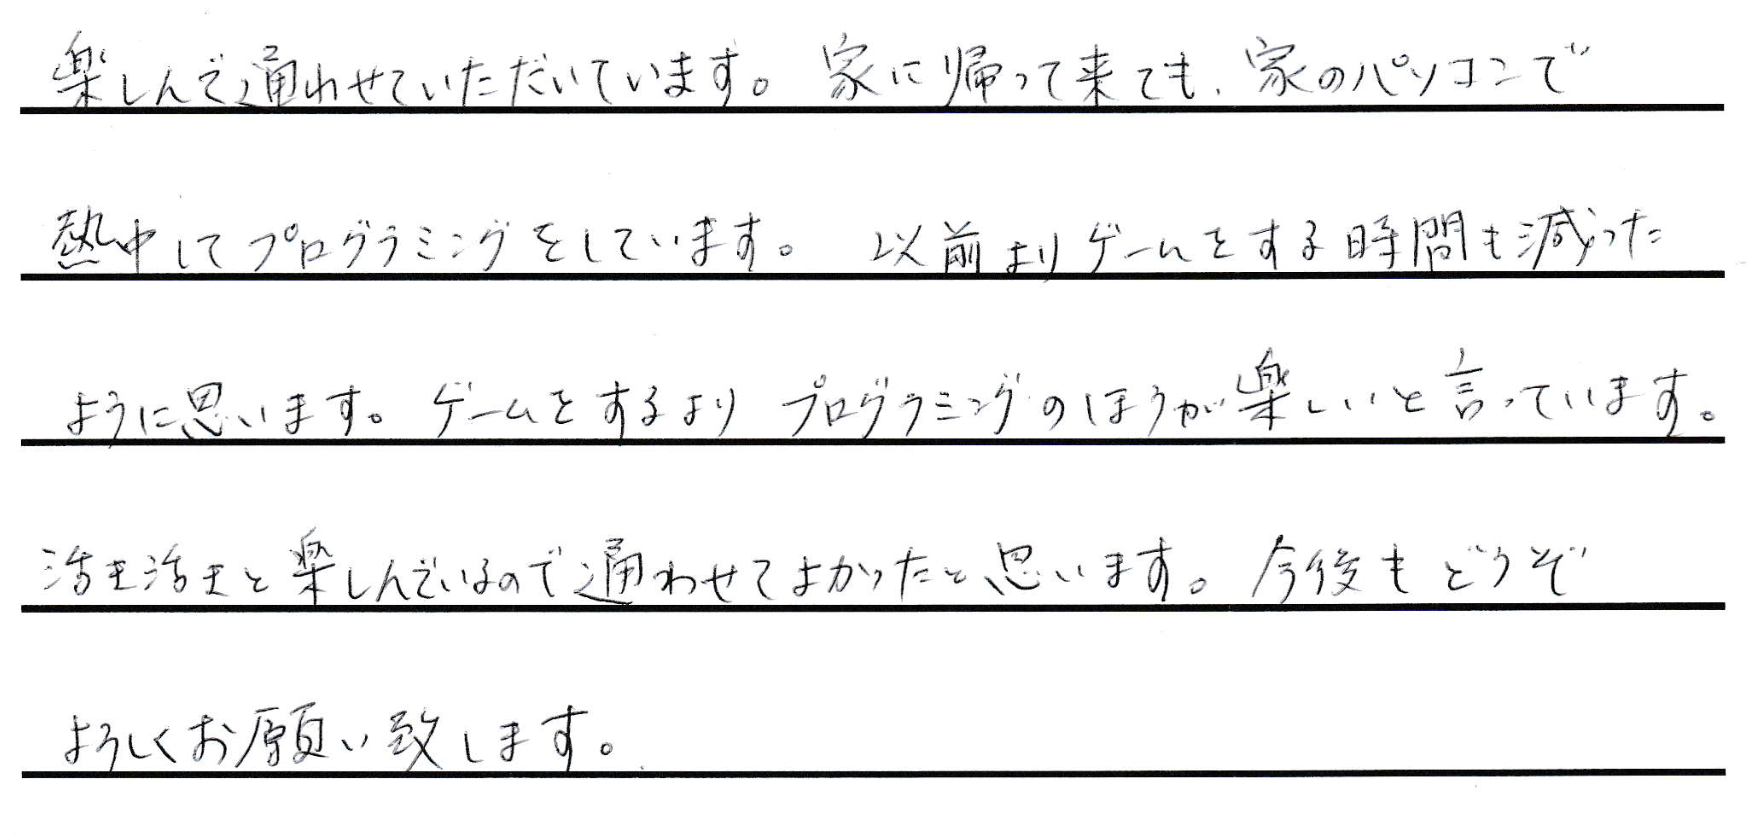 楽しんで通わせていただいています。家に帰って来ても、家のパソコンで
熱中してプログラミングをしています。以前よりゲームをする時間も減った
ように思います。ゲームをするよりプログラミングのほうが楽しいと言っています。
活き活きと楽しんでいるので通わせてよかったと思います。今後もどうぞ
よろしくお願い致します。